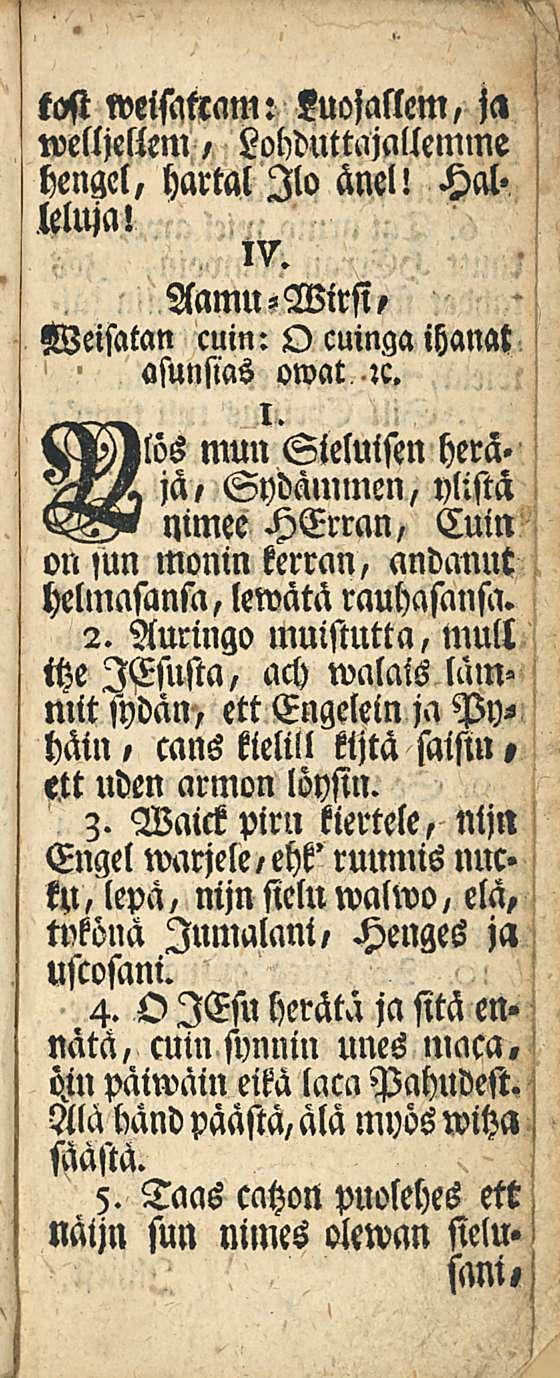 tost weisatcam: Luojallem, ja
welljellem, Lohduttajallemme
hengel, hartal Ilo änel! Hal-
leluja!
IV.
Aamu-Wirsi,
Weisatan cuin: O cuinga ihanat
asunsias owat. ꝛc.
1.
Ylös mun Sieluisen herä-
jä, Sydämmen, ylistä
nimee HErran, Cuin
on sun monin kerran, andanut
helmasansa, lewätä rauhasansa.
2. Auringo muistutta, mull
itze JEsusta, ach walais läm-
mit sydän, ett Engelein ja Py-
häin, cans kielill kijtä saisin,
ett uden armon löysin.
3. Waick piru kiertele, nijn
Engel warjele, ehk' ruumis nuc-
ku, lepä, nijn sielu walwo, elä,
tykönä Jumalani, Henges ja
uscosani.
4. O JEsu herätä ja sitä en-
nätä, cuin synnin unes maca,
öin päiwäin eikä laca Pahudest.
Älä händ päästä, älä myös witza
säästä.
5. Taas catzon puolehes ett
näijn sun nimes olewan sielu-
sani,